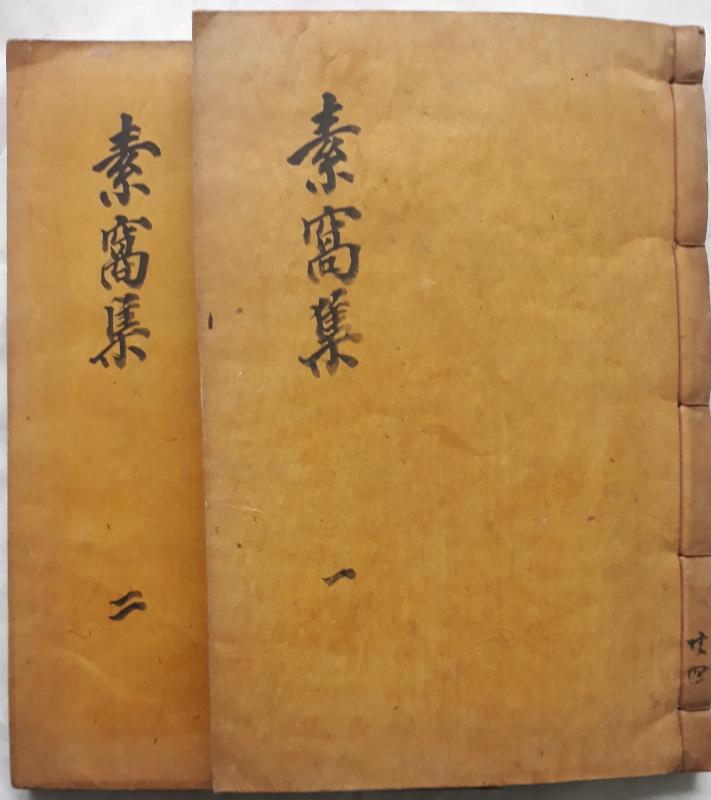 素窩集
一
共四
素窩集
二